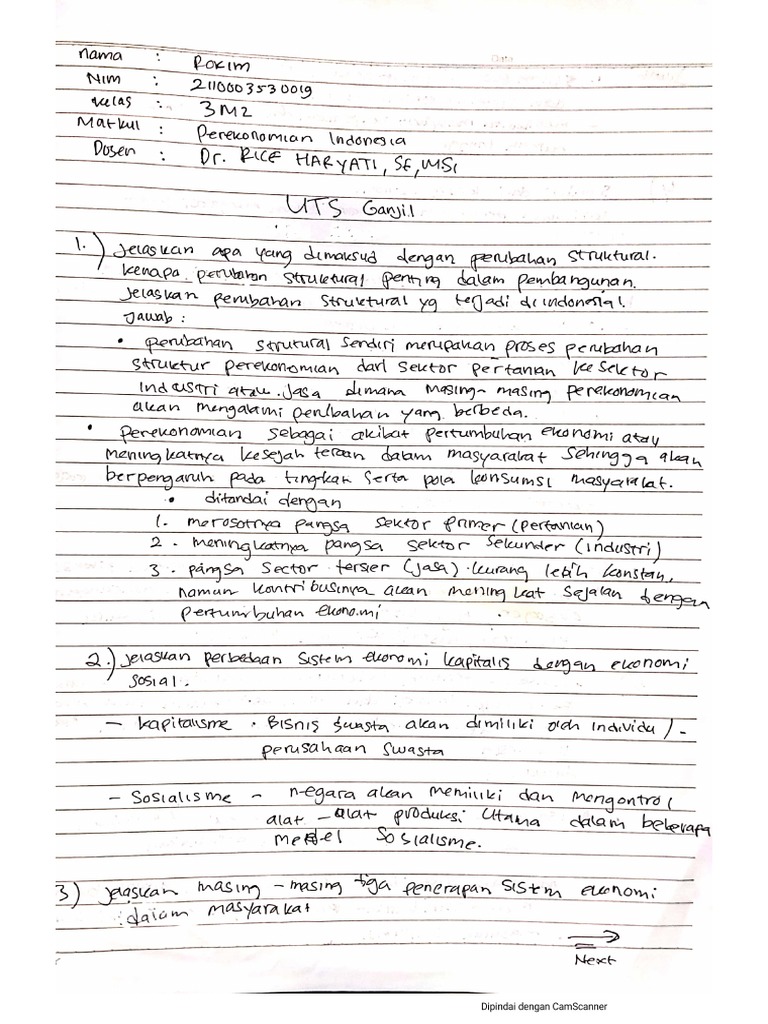 nama : Rokim
Nim : 2110003530019
kelas : 3M2
Matkul : Perekonomian Indonesia
Dosen : Dr. RICE HARYATI, SE, MSi
UTS Ganjil
1.) Jelaskan apa yang dimaksud dengan perubahan struktural.
kenapa perubahan struktural penting dalam pembangunan.
Jelaskan perubahan struktural yg terjadi di indonesia!.
Jawab :
• perubahan strutural sendiri merupakan proses perubahan
struktur perekonomian dari sektor pertanian ke sektor
industri atau jasa dimana masing-masing perekonomian
akan mengalami perubahan yang berbeda.
• perekonomian sebagai akibat pertumbuhan ekonomi atau
meningkatnya kesejahteraan dalam masyarakat sehingga akan
berpengaruh pada tingkat serta pola konsumsi masyarakat.
• ditandai dengan
1. merosotnya pangsa sektor primer (pertanian)
2. meningkatnya pangsa sektor sekunder (industri)
3. pangsa sector terser (jasa) kurang lebih konstan,
namun kontribusinya akan meningkat sejalan dengan
pertumbuhan ekonomi
2.) jelaskan perbedaan sistem ekonomi kapitalis dengan ekonomi
sosial.
- kapitalisme . Bisnis swasta akan dimiliki oleh individu / -
perusahaan swasta
- Sosialisme - negara akan memiliki dan mengontrol
alat - alat produksi utama dalam beberapa
model Sosialisme.
3) jelaskan masing - masing tiga penerapan sistem ekonomi
dalam masyarakat
Next
Dipindai dengan CamScanner